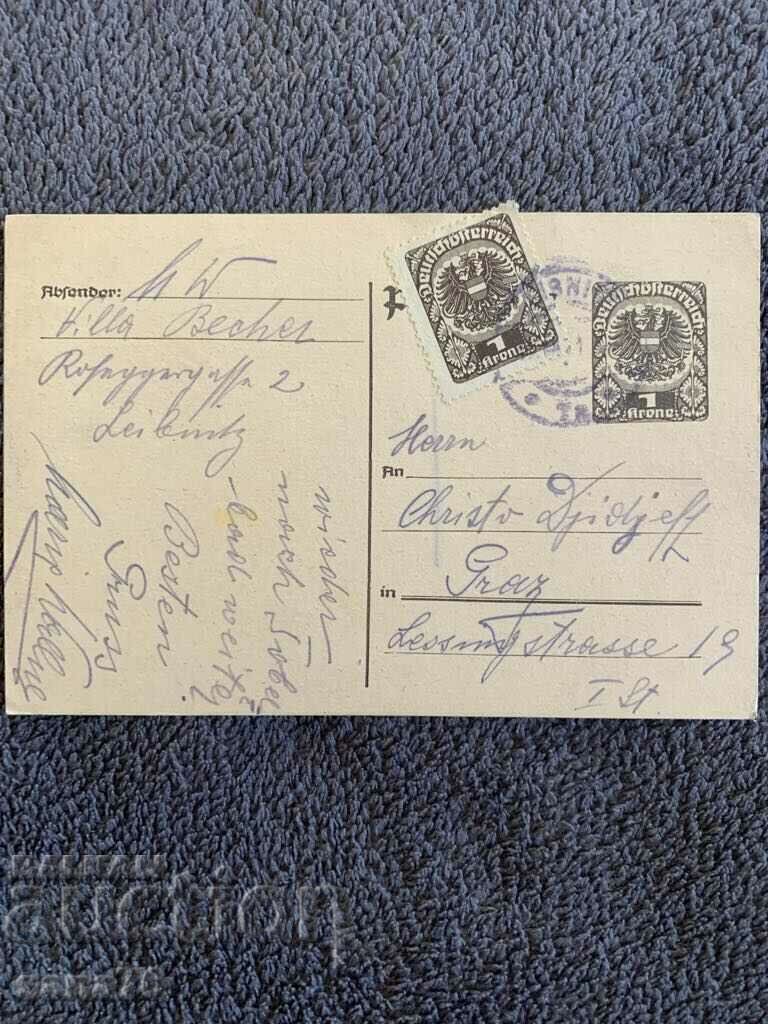 Absender: M W
Villa Becher
Roseggergasse 2
Leibnitz
wieder
nach Tobel
bad weiter
Besten
Gruss
Deutschösterreich
1
Krone
Deutschösterreich
1
Krone
Herrn
An Christo Djidjeff
in Graz
Lessingstrasse 19
I St.
BALKAN
auction